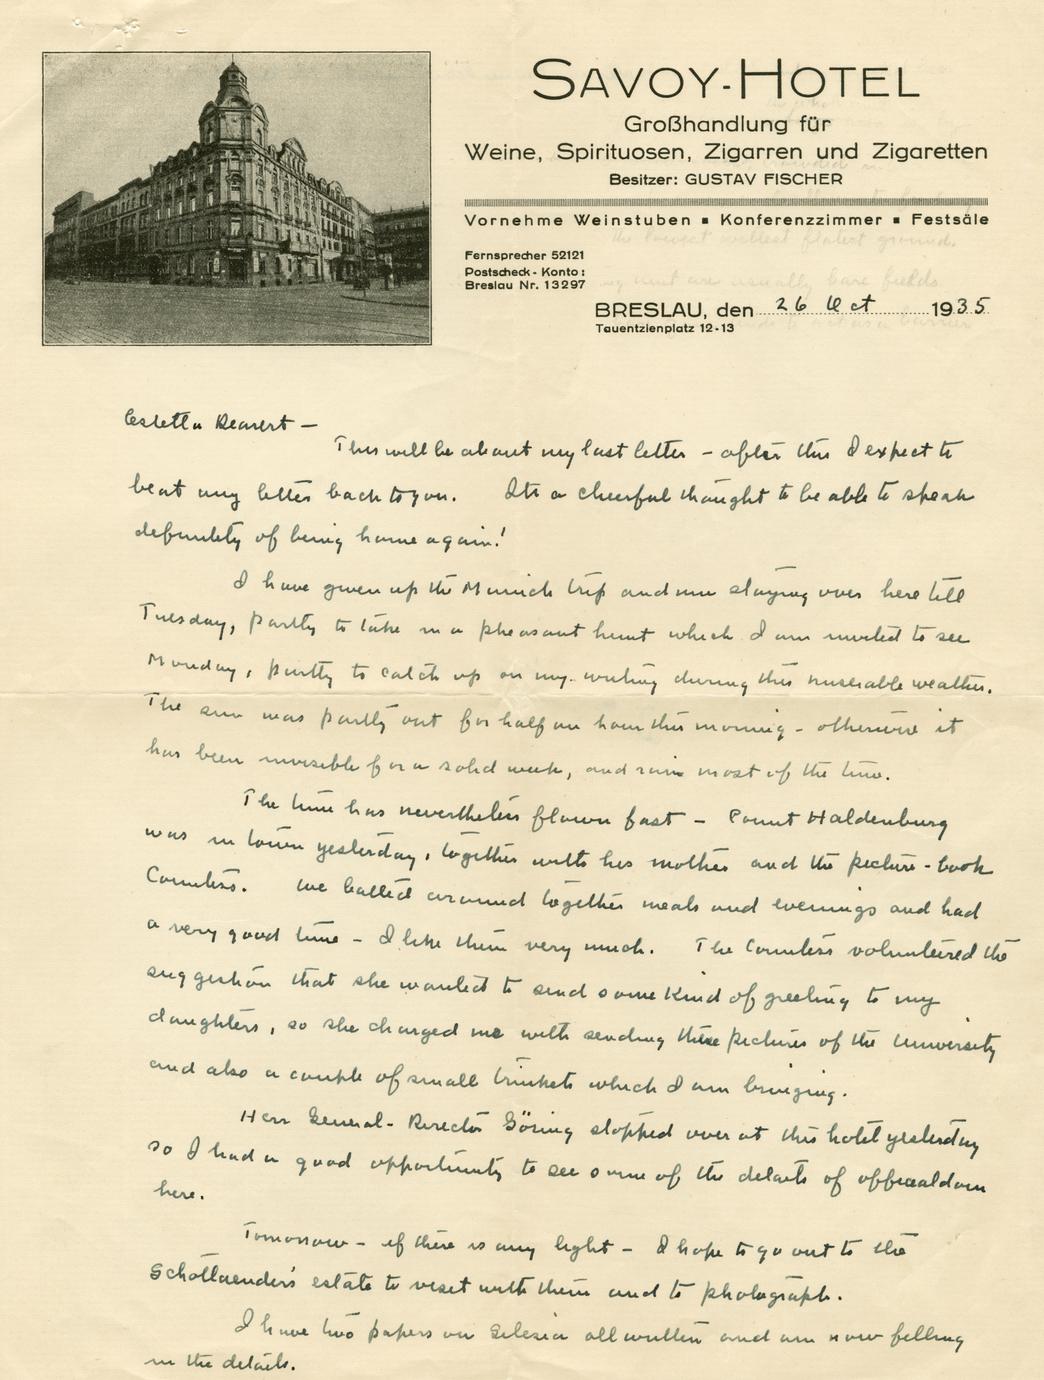 SAVOY-HOTEL
Großhandlung für
Weine, Spirituosen, Zigarren und Zigaretten
Besitzer: GUSTAV FISCHER
Vornehme Weinstuben ▪ Konferenzzimmer ▪ Festsäle
Fernsprecher 52121
Postscheck-Konto:
Breslau Nr. 13297
BRESLAU, den 26 Oct 1935
Tauentzienplatz 12-13
Estella Dearest —
This will be about my last letter – after this I expect to
beat any letter back to you. Its a cheerful thought to be able to speak
definitely of being home again!
I have given up the Munich trip and am staying over here till
Tuesday, partly to take in a pheasant hunt which I am invited to see
Monday, partly to catch up on my writing during this miserable weather.
The sun was partly out for half an hour this morning – otherwise it
has been invisible for a solid week, and rain most of the time.
The time has nevertheless flown fast – Count Haldenburg
was in town yesterday, together with his mother and the picture-book
Countess. We balled around together meals and evenings and had
a very good time – I like them very much. The Countess volunteered the
suggestion that she wanted to send some kind of greeting to my
daughters, so she charged me with sending these pictures of the University
and also a couple of small trinkets which I am bringing.
Herr General-Director Göring stopped over at this hotel yesterday
so I had a good opportunity to see some of the details of officialdom
here.
Tomorrow – if there is any light – I hope to go out to the
Schottlaender's estate to visit with them and to photograph.
I have two papers on Silesia all written and am now filling
in the details.